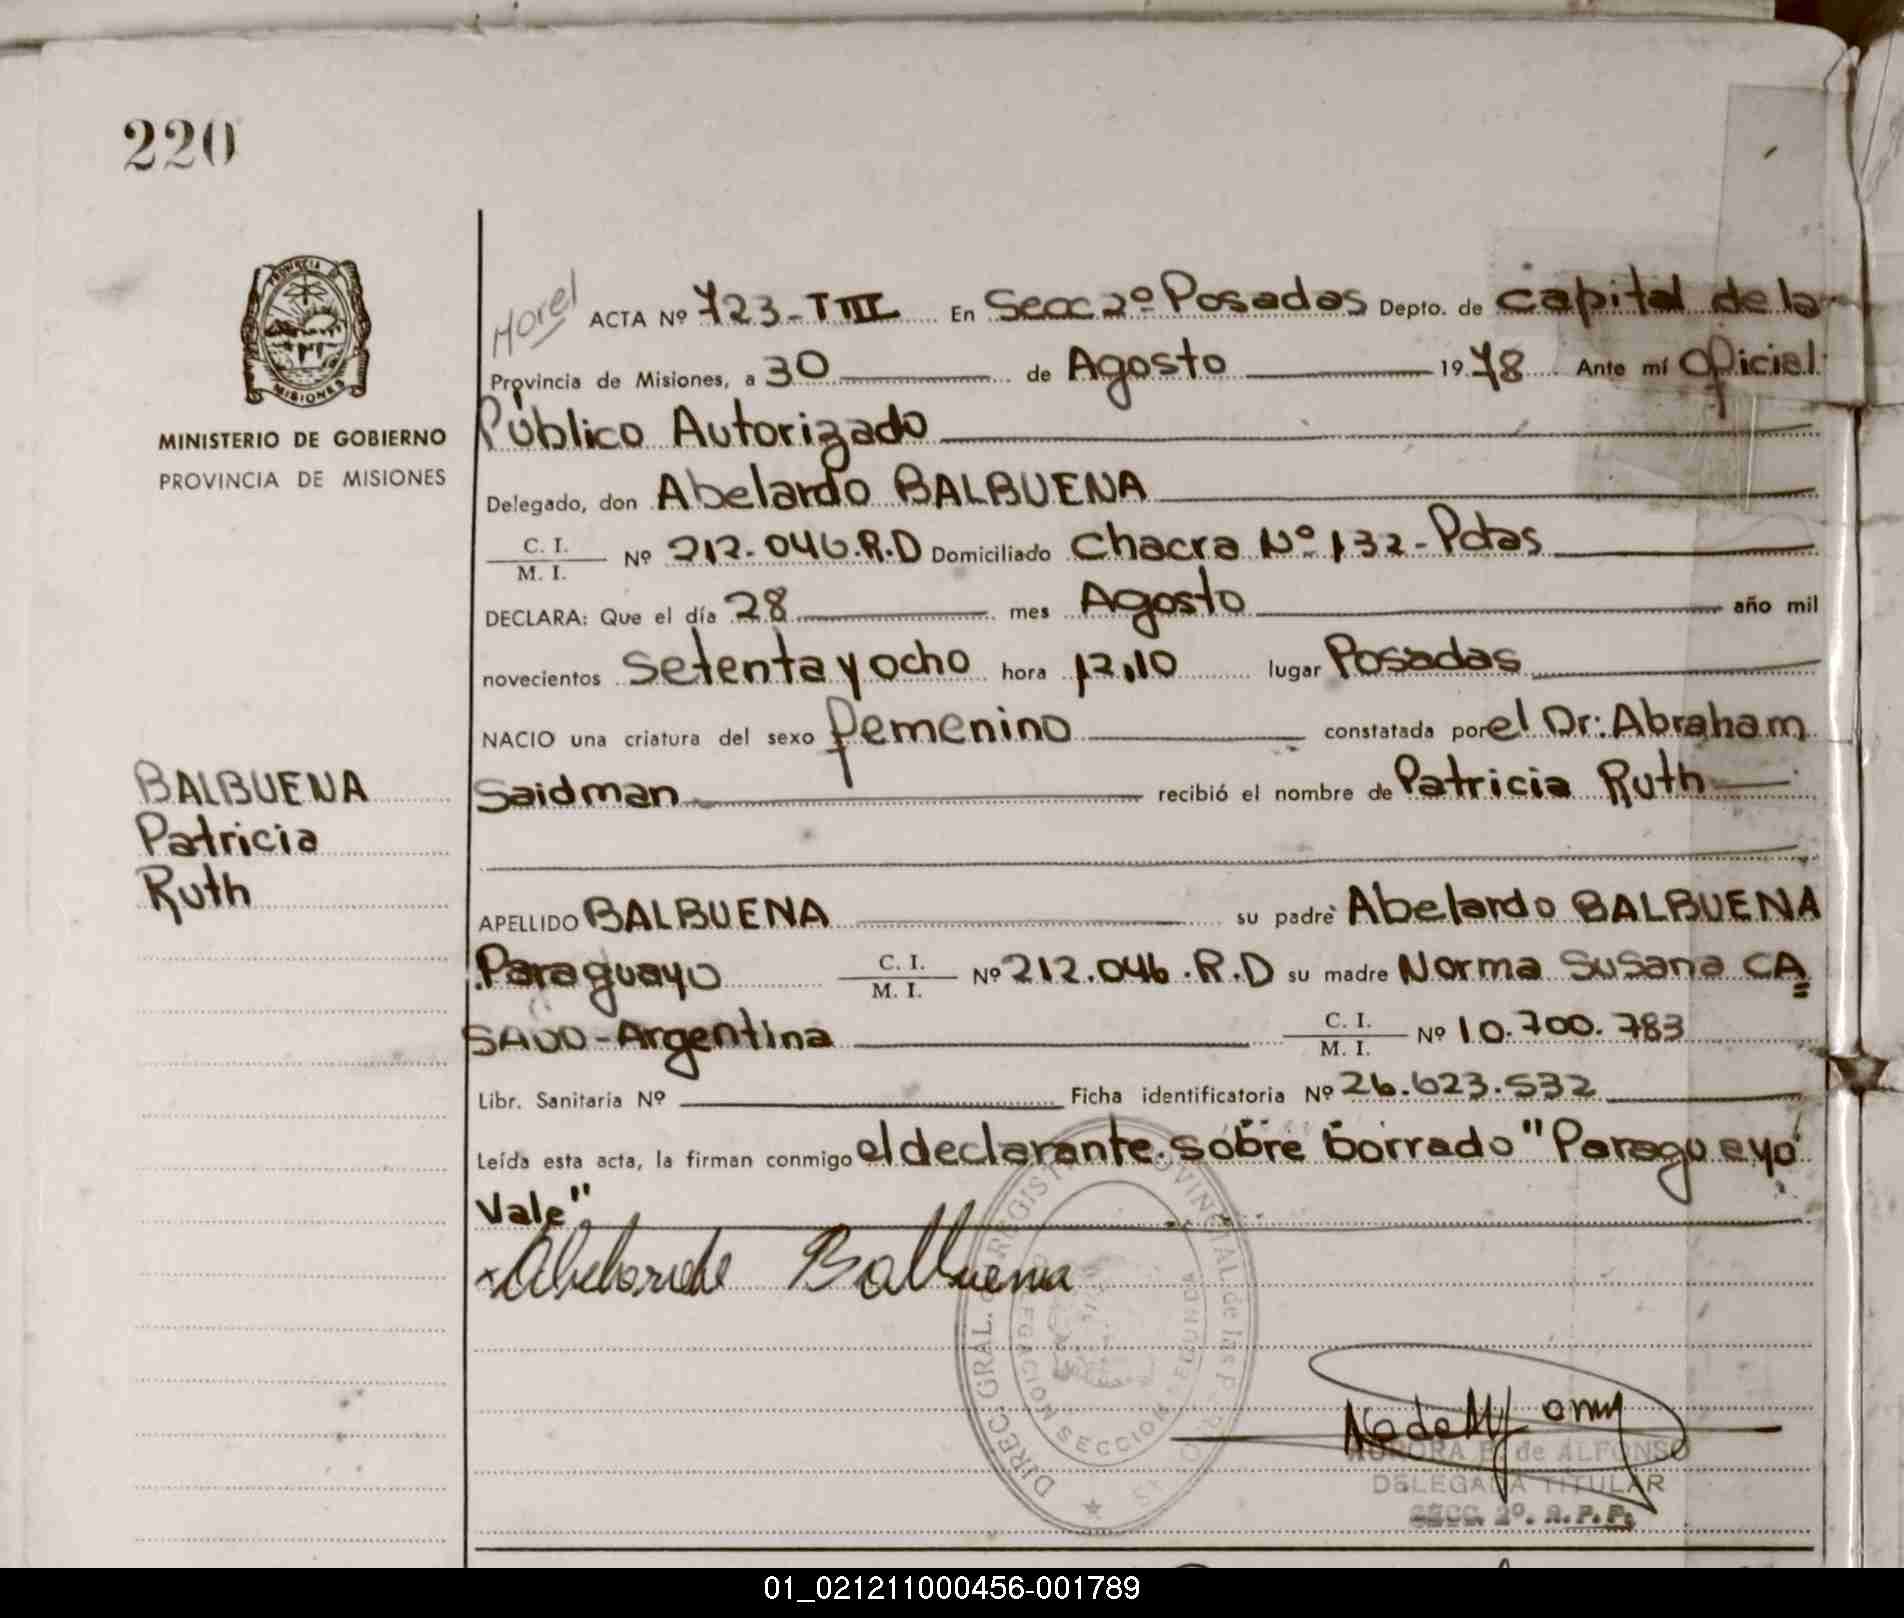 220
PROVINCIA DE
MISIONES
MINISTERIO DE GOBIERNO
PROVINCIA DE MISIONES
BALBUENA
Patricia
Ruth
ACTA Nº 723-TIII En Secc 2º Posadas Depto. de capital de la
Provincia de Misiones, a 30 de Agosto 1978 Ante mí Oficial
Público Autorizado
Delegado, don Abelardo BALBUENA
C. I. / M. I. Nº 212.046.R.D Domiciliado Chacra Nº 132-Pdas
DECLARA: Que el día 28 mes Agosto año mil
novecientos setenta y ocho hora 12,10 lugar Posadas
NACIO una criatura del sexo femenino constatada por el Dr: Abraham
Saidman recibió el nombre de Patricia Ruth
APELLIDO BALBUENA su padre Abelardo BALBUENA
Paraguayo C. I. / M. I. Nº 212.046.R.D su madre Norma Susana CA=
SADO-Argentina C. I. / M. I. Nº 10.700.783
Libr. Sanitaria Nº Ficha identificatoria Nº 26.623.532
Leída esta acta, la firman conmigo el declarante. sobre borrado "Paraguayo
Vale"
Abelardo Balbuena
DIREC. GRAL. REGISTRO PROVINCIAL de las
DELEGACION SECCION SEGUNDA
de ALFONSO
DELEGADA TITULAR
SECC. 2º. R.P.P.
01_021211000456-001789